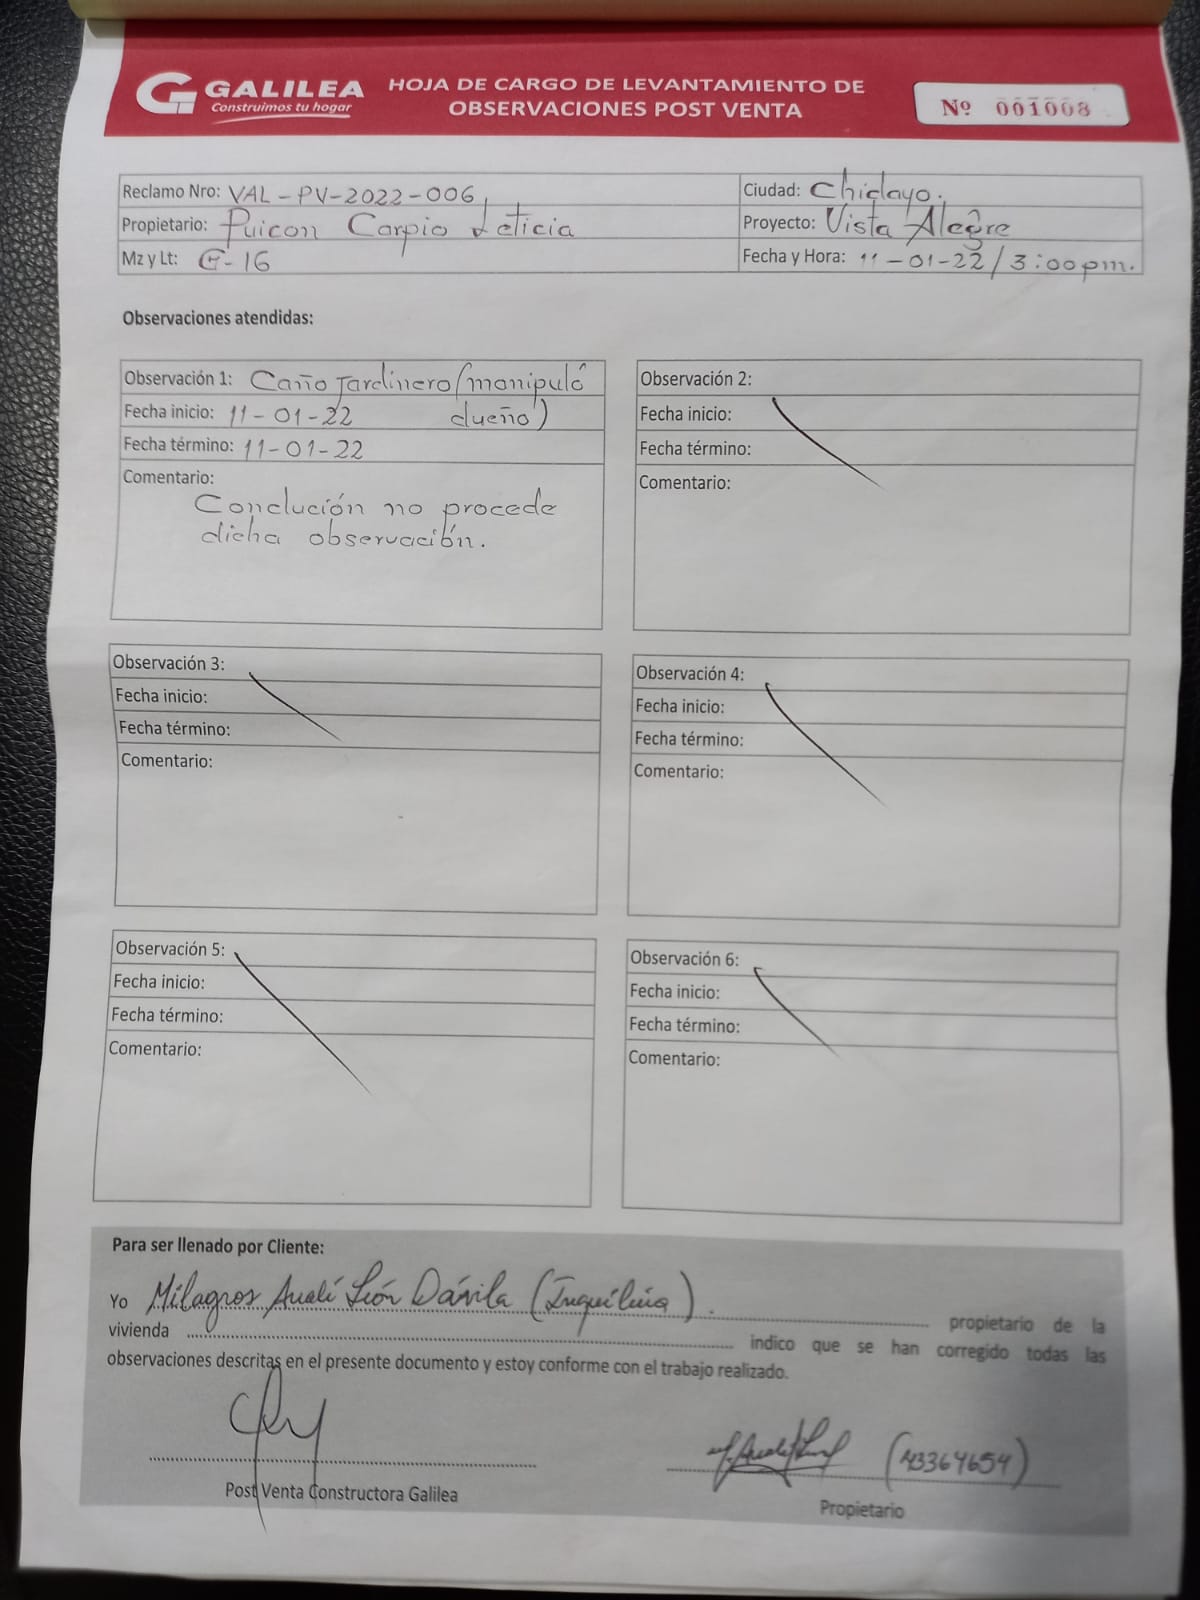 GALILEA
Construimos tu hogar
HOJA DE CARGO DE LEVANTAMIENTO DE
OBSERVACIONES POST VENTA
Nº 001008
Reclamo Nro: VAL-PV-2022-006
Ciudad: Chiclayo.
Propietario: Puicon Carpio Leticia
Proyecto: Vista Alegre
Mz y Lt: G-16
Fecha y Hora: 11-01-22/3:00pm.
Observaciones atendidas:
Observación 1: Caño Jardinero (manipuló
Fecha inicio: 11-01-22 dueño)
Fecha término: 11-01-22
Comentario:
Conclución no procede
dicha observación.
Observación 2:
Fecha inicio:
Fecha término:
Comentario:
Observación 3:
Fecha inicio:
Fecha término:
Comentario:
Observación 4:
Fecha inicio:
Fecha término:
Comentario:
Observación 5:
Fecha inicio:
Fecha término:
Comentario:
Observación 6:
Fecha inicio:
Fecha término:
Comentario:
Para ser llenado por Cliente:
Yo Milagros Analí León Dávila (Inquilina). propietario de la
vivienda indico que se han corregido todas las
observaciones descritas en el presente documento y estoy conforme con el trabajo realizado.
(43364654)
Post Venta Constructora Galilea
Propietario